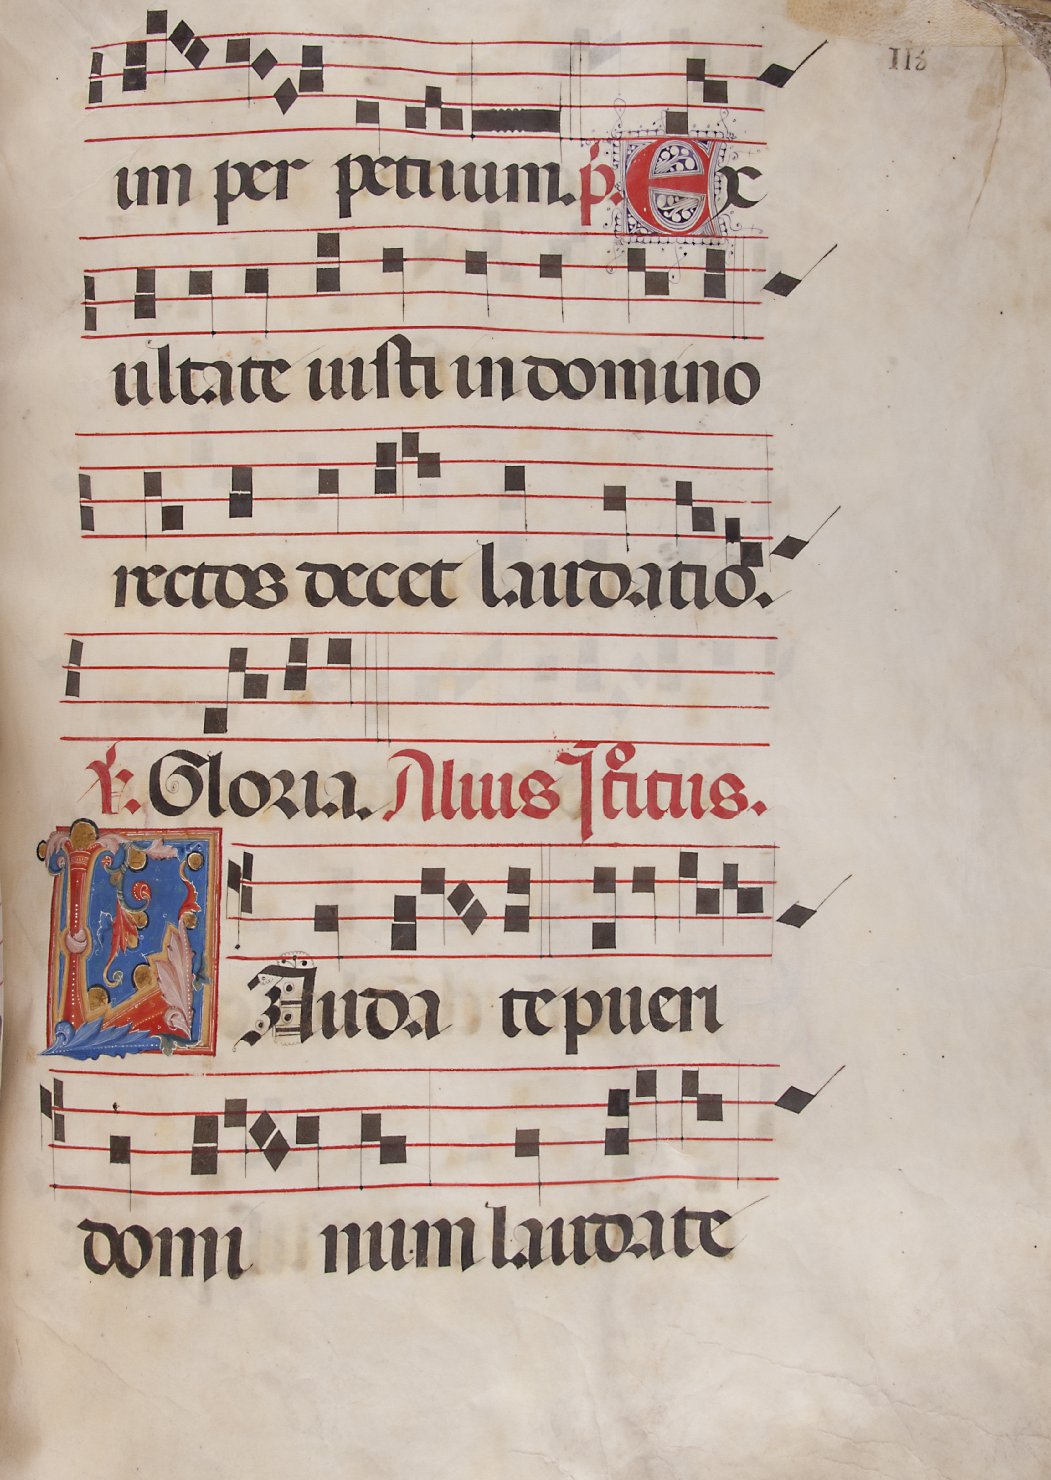 113
im per petuum. p̄. Ex
ultate iusti in domino
rectos decet laudatio.
℣. Gloria. Alius Ītoitus.
LAuda te pueri
domi num laudate